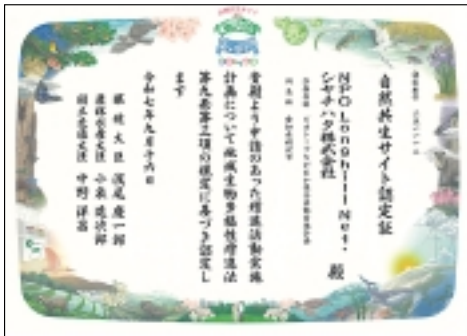 自然共生サイト認定証
NPO Longhill Net.
シヤチハタ株式会社
殿
貴殿より申請のあった増進活動実施
計画について地域生物多様性増進法
第九条第三項の規定に基づき認定し
ます
令和七年九月十六日
環境大臣 浅尾 慶一郎
農林水産大臣 小泉 進次郎
国土交通大臣 中野 洋昌